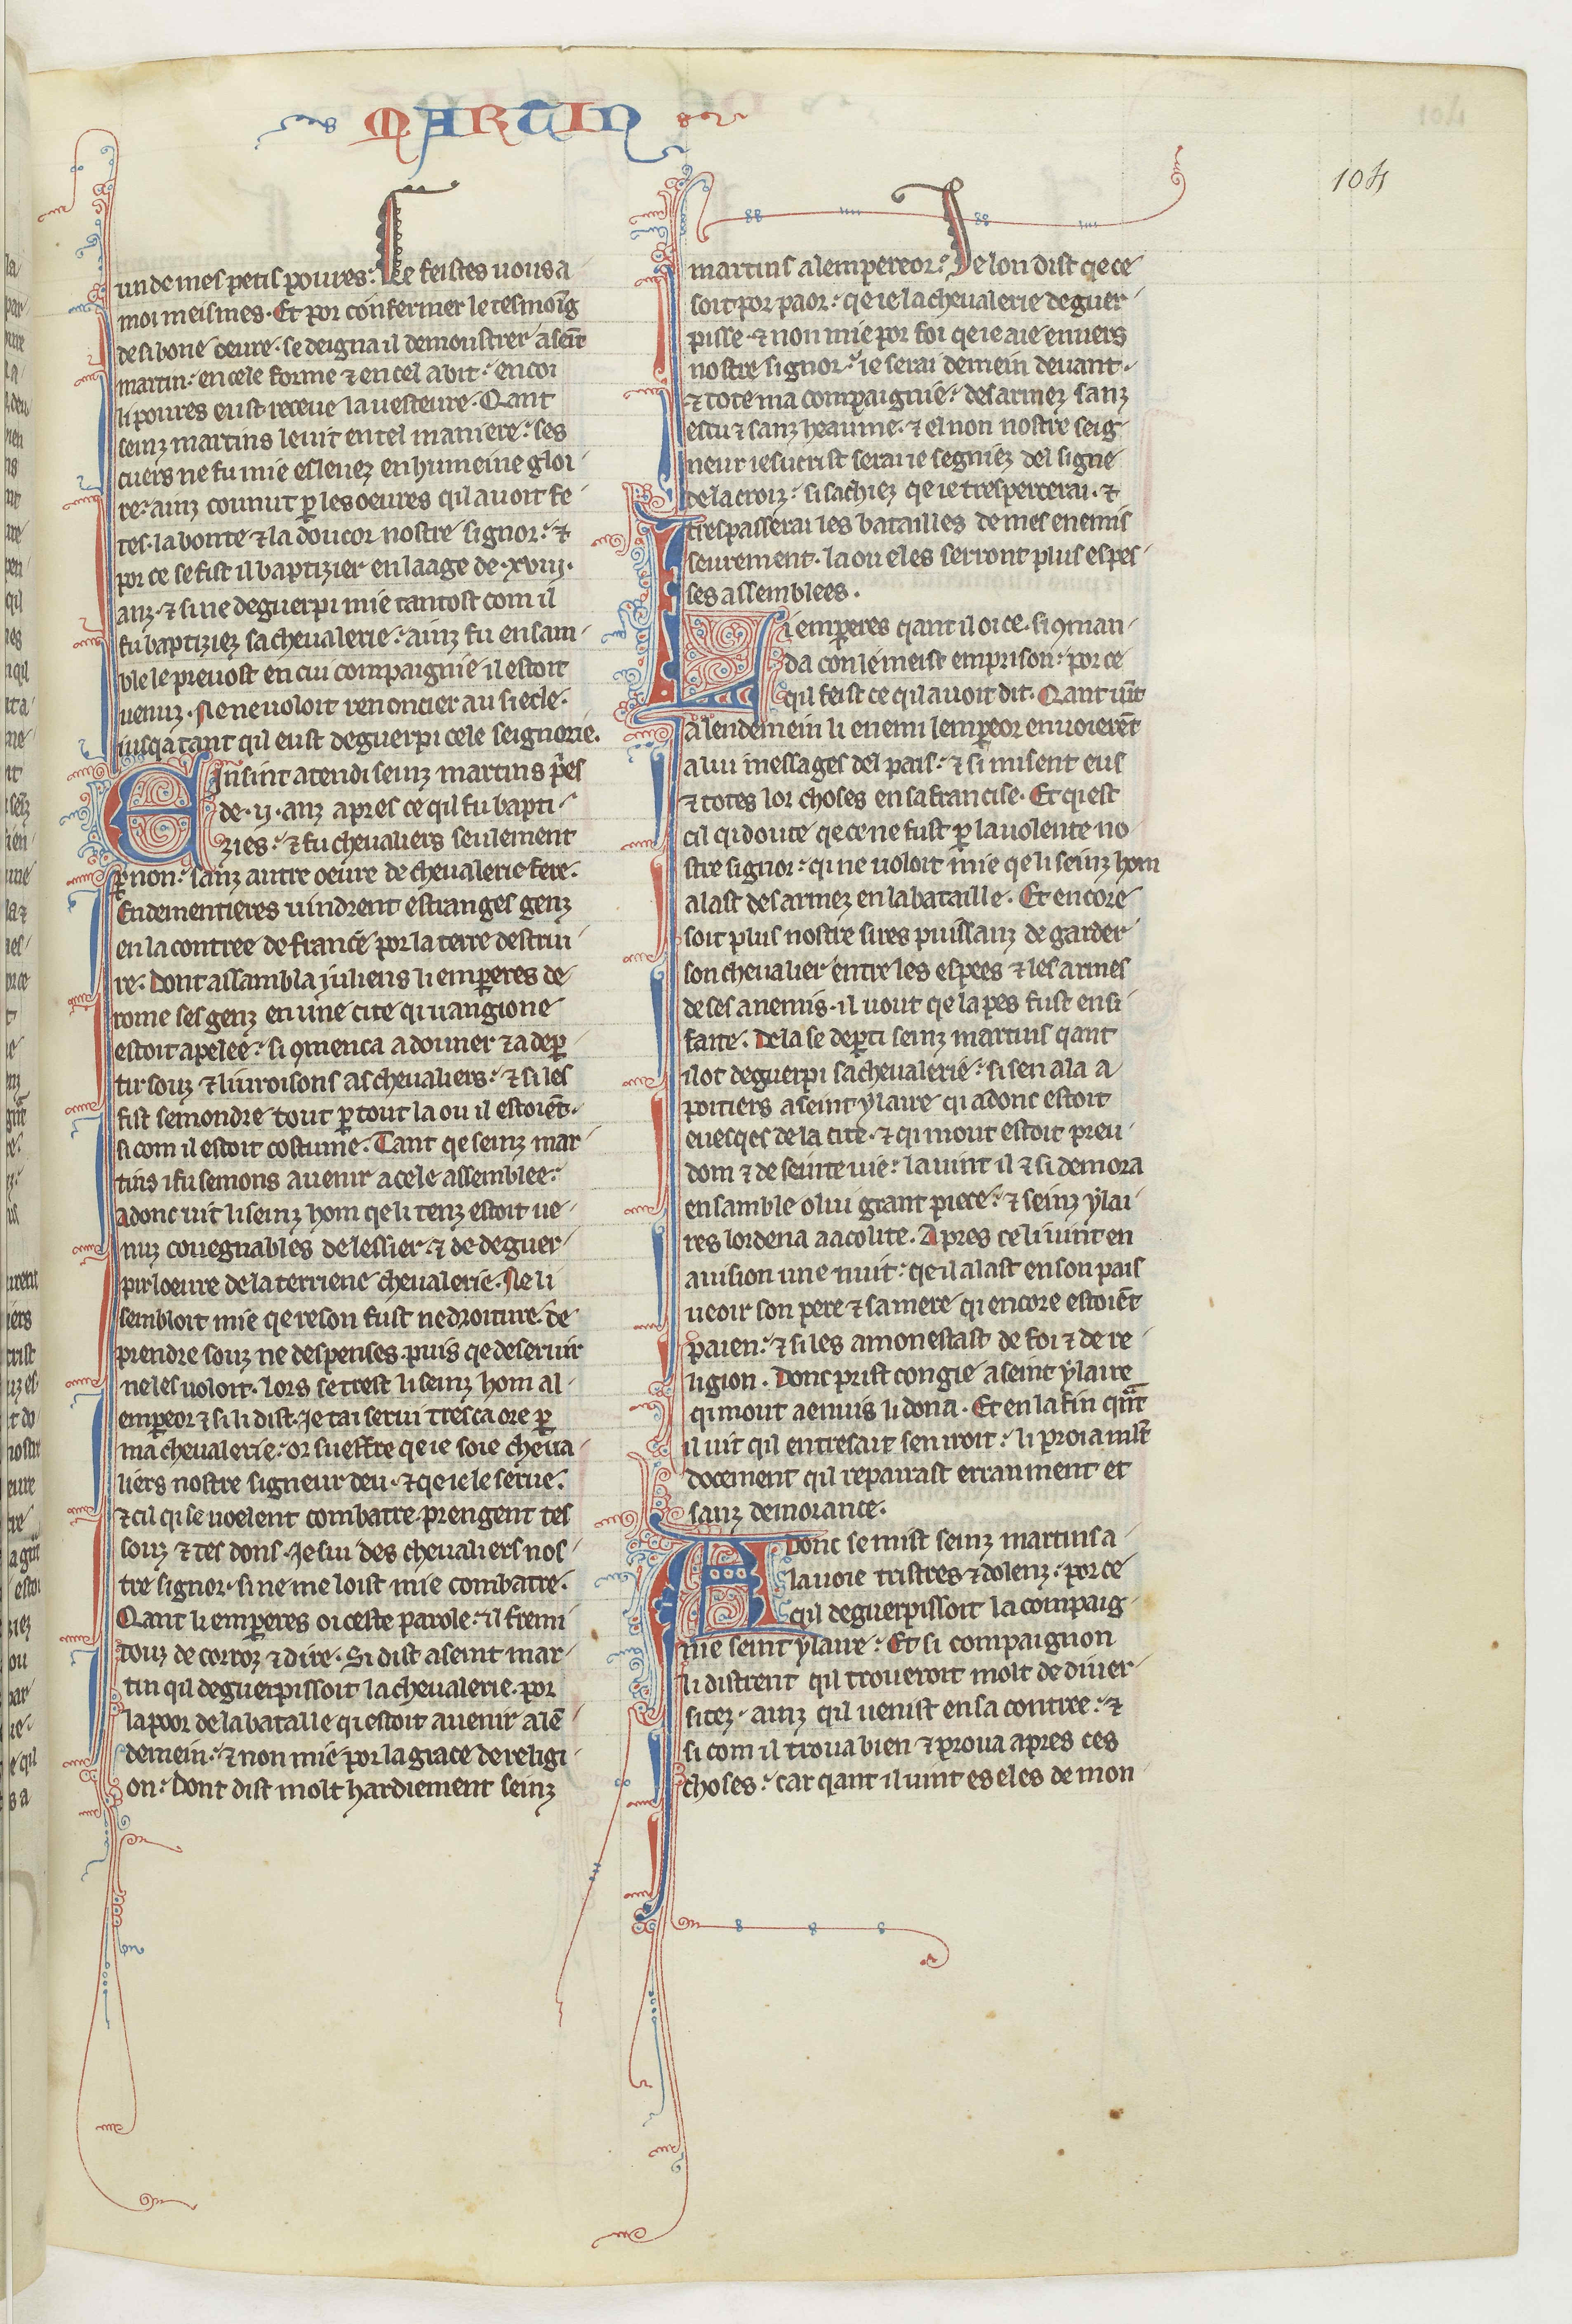 MARTIN
104
un de mes petis poures: Le feistes uous a
moi meismes. Et por confermer le tesmoīg
de si bone oeure. se deigna il demoustrer a seīt
martin: en cele forme ⁊ en cel abit: en coi
li poures eust receue la uesteure. Qant
seinz martins le uit en tel maniere: ses
cuers ne fu mie esleuez en humeine gloi
re: ainz counut ꝑ les oeures qil auoit fe
tes. la bonte ⁊ la doucor nostre signor: ⁊
por ce se fist il baptizier en laage de .xviij.
anz. ⁊ si ne deguerpi mie tantost com il
fu baptiziez sa cheualerie: ainz fu ensam
ble le preuost en cui compaignie il estoit
uenuz. Ne ne uoloit renoncier au siecle.
iusqa tant qil eust deguerpi cele seignorie.
Einsint atendi seinz martins p̄s
de .ij. anz apres ce qil fu bapti
zies: ⁊ fu cheualiers seulement
ꝑ non: sanz autre oeure de cheualerie fere.
Endementieres uindrent estranges genz
en la contree de france por la terre destrui
re. Dont assambla juliens li emꝑeres de
rome ses genz en une cite qi uangione
estoit apelee: si ꝯmenca a donner ⁊ a deꝑ
tir souz ⁊ liuroisons as cheualiers: ⁊ si les
fist semondre tout ꝑ tout la ou il estoiēt.
si com il estoit costume. Tant qe seinz mar
tins i fu semons a uenir a cele assemblee:
adonc uit li seinz hom qe li tenz estoit ue
nuz couegnables de lessier. ⁊ de deguer
pir loeure de la terriene cheualerie. Ne li
sembloit mie qe reson fust ne droiture. de
prendre souz ne despenses. puis qe deseruir
ne les uoloit. lors se trest li seinz hom al
emꝑeor ⁊ si li dist. Je tai serui tresca ore ꝑ
ma cheualerie: or sueffre qe ie soie cheua
liers nostre signeur deu. ⁊ qe ie le serue.
⁊ cil qi se uoelent combatre. prengent tes
souz ⁊ tes dons. Je sui des cheualiers nos
tre signor. si ne me loist mie combatre.
Qant li emꝑeres oi ceste parole: il fremi
touz de corroz ⁊ dire. Si dist a seint mar
tin qil deguerpissoit la cheualerie. por
la poor de la bataille qi estoit a uenir a lē
demein: ⁊ non mie por la grace de religi
on: Dont dist molt hardiement seinz
martins a lempereor: Se lon dist qe ce
soit por paor: qe ie la cheualerie deguer
pisse. ⁊ non mie por foi qe ie aie enuers
nostre signor: ie serai demein deuant
⁊ tote ma compaignie: desarmez sanz
escu ⁊ sanz heaume. ⁊ el non nostre seig
neur iesucrist serai ie segniez del signe
de la croiz: si sachiez qe ie trespercerai. ⁊
trespasserai les batailles de mes enemis
seurement. la ou eles serront plus espes
ses assemblees.
Li emꝑeres qant il oi ce. si ꝯman
da con le meist em prison: por ce
qil feist ce qil auoit dit. Qant uīt
a lendemein li enemi lemꝑeor enuoierēt
a lui messages del pais: ⁊ si misent eus
⁊ totes lor choses en sa francise. Et qi est
cil qi doute qe ce ne fust ꝑ la uolente no
stre signor: qi ne uoloit mie qe li seinz hom
alast desarmez en la bataille. Et encore
soit plus nostre sires puissanz de garder
son cheualier entre les espees ⁊ les armes
de ses anemis. il uout qe la pes fust ensi
faite. De la se deꝑti seinz martins qant
il ot deguerpi sa cheualerie: si sen ala a
poitiers a seint ylaire qi adonc estoit
euesqes de la cite. ⁊ qi mout estoit preu
dom ⁊ de seinte uie: la uint il ⁊ si demora
ensamble o lui grant piece: ⁊ seinz ylai
res lordena a acolite. Apres ce li uint en
auision une nuit: qe il alast en son pais
ueoir son pere ⁊ sa mere qi encore estoiēt
paien: ⁊ si les amonestast de foi ⁊ de re
ligion. Donc prist congie a seint ylaire
qi mout a enuis li dona. Et en la fin qn̄t
il uit qil entresait sen iroit: li proia ml̄t
docement qil repairast erranment et
sanz demorance.
Adonc se mist seinz martins a
la uoie tristres ⁊ dolenz. por ce
qil deguerpissoit la compaig
nie seint ylaire: Et si compaignon
li distrent qil troueroit molt de diuer
sitez. ainz qil uenist en sa contree: ⁊
si com il troua bien ⁊ proua apres ces
choses: car qant il uint es eles de mon